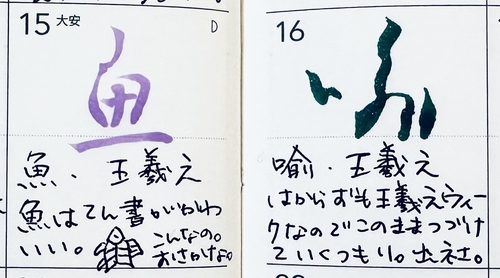 15 大安
D
魚
魚・王羲え
魚はてん書がいがわ
いい。 こんなの。
おさかなな。
16
喩
喩・王羲え
はからずも王羲えウィー
クなのでこのままつづけ
ていくつもり。